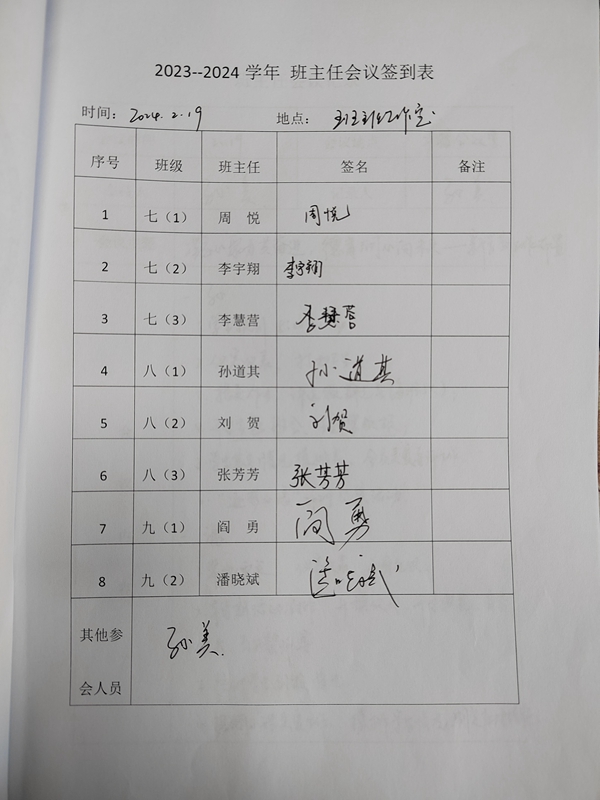 2023--2024 学年 班主任会议签到表
时间: 2024.2.19 地点:
序号 班级 班主任 签名 备注
1 七（1） 周 悦 周悦
2 七（2） 李宇翔 李宇翔
3 七（3） 李慧营 李慧营
4 八（1） 孙道其 孙道其
5 八（2） 刘 贺 刘贺
6 八（3） 张芳芳 张芳芳
7 九（1） 阎 勇 阎勇
8 九（2） 潘晓斌 潘晓斌
其他参
会人员
孙美